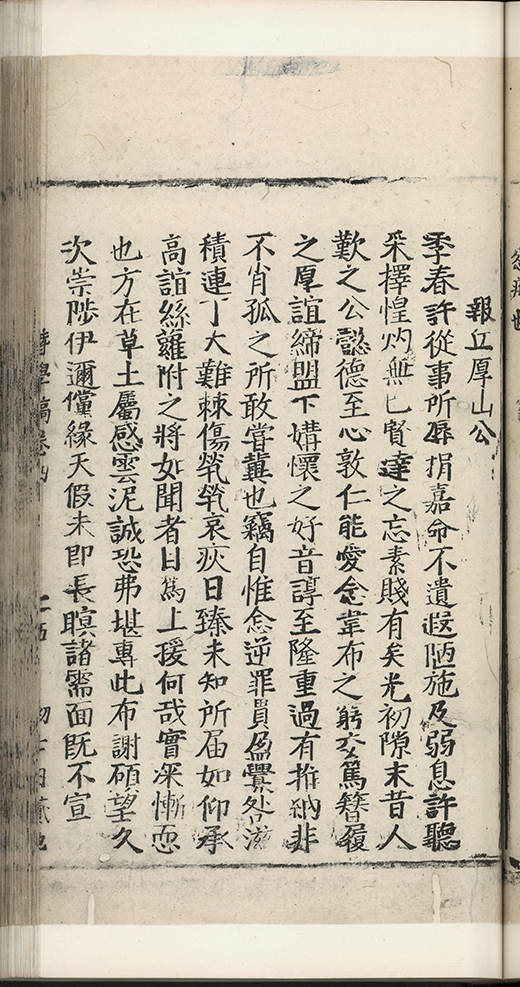 報丘厚山公
季春許從事所辱捐嘉命不遺遐陋施及弱息許聽
采擇惶灼無已賢達之忘素賤有矣光初隙末昔人
歎之公懿德至心敦仁能愛念韋布之窮交篤簪履
之厚誼締盟下媾懷之好音諄至隆重過有推納非
不肖孤之所敢嘗冀也竊自惟念逆罪貫盈釁咎滋
積連丁大難棘傷煢煢哀疚日臻未知所届如仰承
高誼絲蘿附之將如聞者曰篤上援何哉實深慚恧
也方在草土屬感雲泥誠恐弗堪專此布謝碩望久
次崇陟伊邇儻緣天假未即長瞑諸需面既不宣